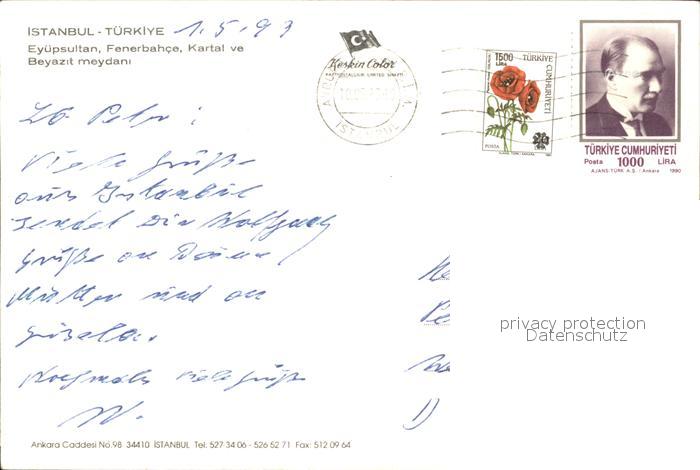 İSTANBUL - TÜRKİYE 1.5.93
Eyüpsultan, Fenerbahçe, Kartal ve
Beyazıt meydanı
Keskin Color
KARTPOSTALCILIK LIMITED ŞİRKETİ
İSTANBUL
1500
LİRA
TÜRKİYE
CUMHURİYETİ
POSTA
TÜRKİYE CUMHURİYETİ
Posta 1000 LİRA
AJANS-TÜRK A.Ş. / Ankara 1990
Lb Peter :
Viele Grüße
aus Istanbul
sendet Dir Wolfgang
Grüße an Deine
Mutter und an
Gisela.
Nochmals viele Grüße
W.
privacy protection
Datenschutz
Ankara Caddesi No.98 34410 İSTANBUL Tel: 527 34 06 - 526 52 71 Fax: 512 09 64